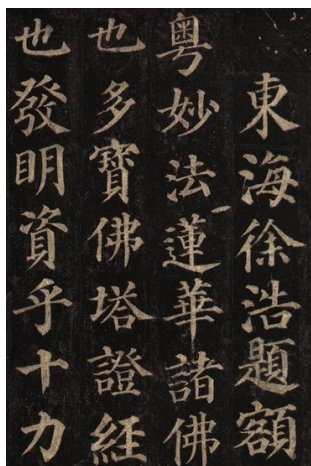 東海徐浩題額
粵妙法蓮華諸佛
也多寶佛塔證經
也發明資乎十力